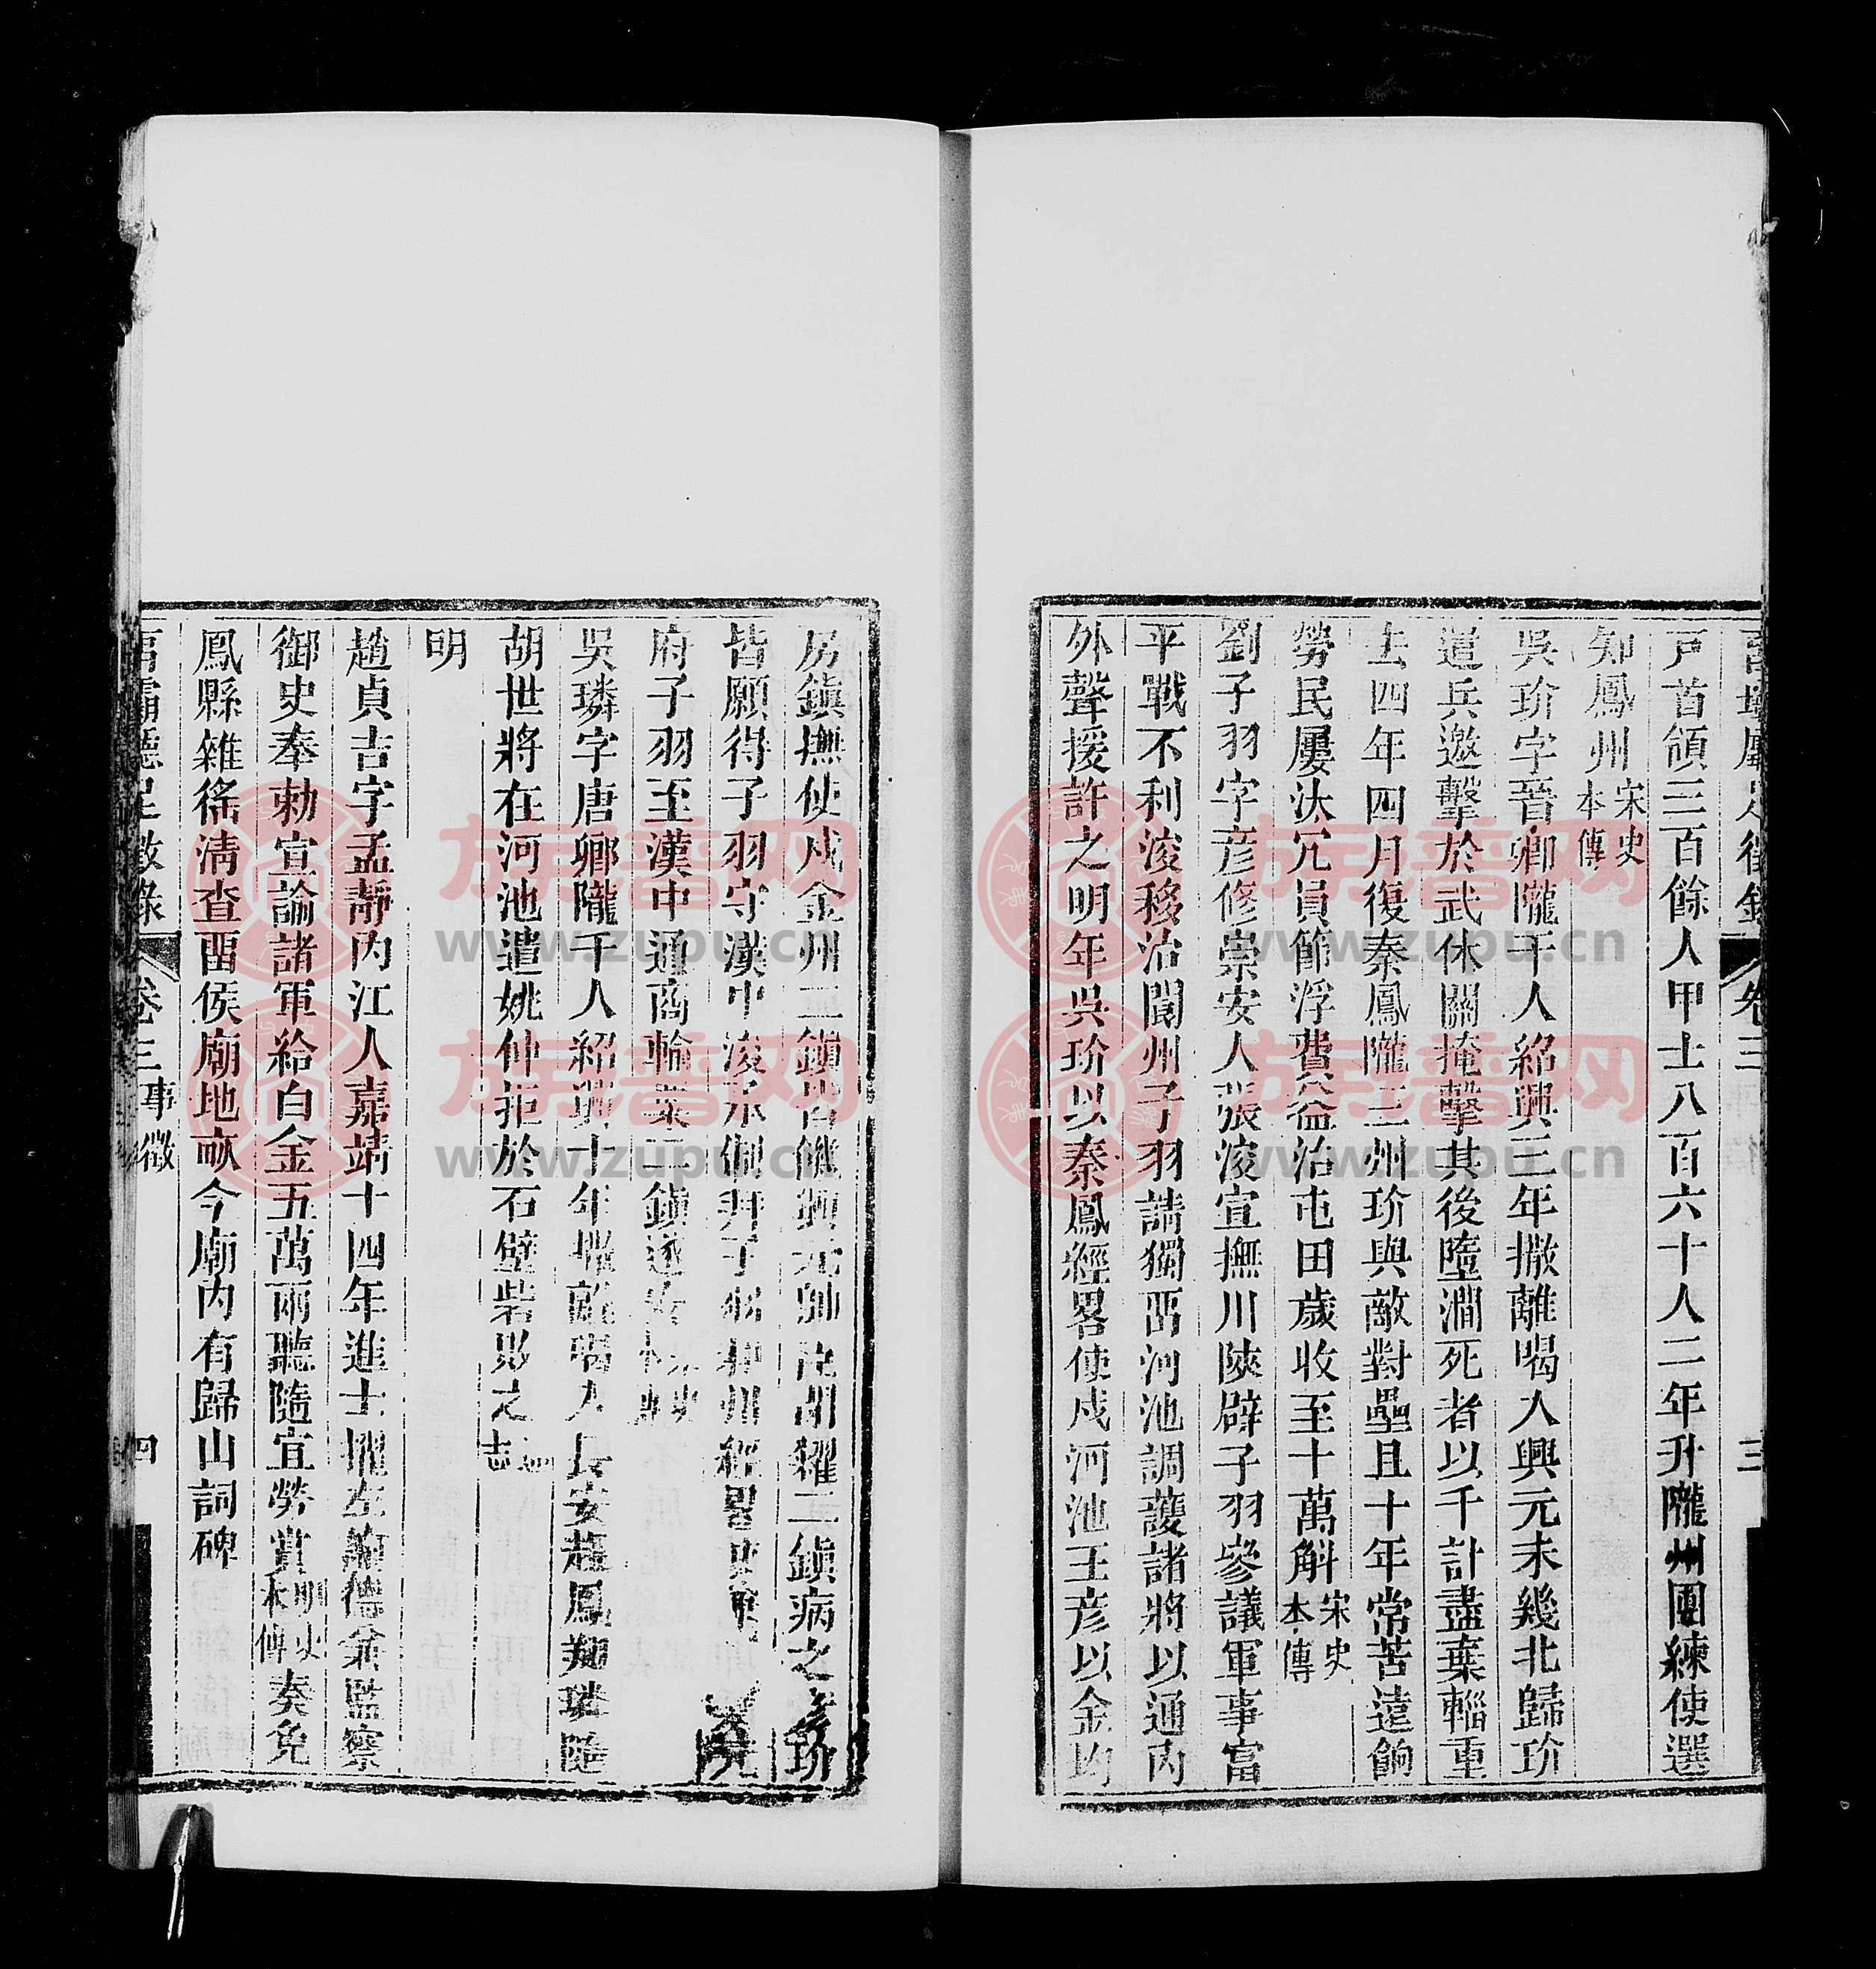 卷三
三
戸首領三百餘人甲士八百六十人二年升隴州團練使選
知鳳州宋史本傳
吳玠字晉卿隴干人紹興三年撒離喝入興元未幾北歸玠
遣兵邀擊於武休關掩擊其後墮澗死者以千計盡棄輜重
去四年四月復秦鳳隴三州玠與敵對壘且十年常苦遠餉
勞民屢汰冗員節浮費益治屯田歲收至十萬斛宋史本傳
劉子羽字彥修崇安人張浚宣撫川陝辟子羽參議軍事富
平戰不利浚移治閬州子羽請獨西河池調護諸將以通內
外聲援許之明年吳玠以秦鳳經畧使戍河池王彥以金均
房鎮撫使戍金州二鎮皆饑興元帥臣閉糴二鎮病之玠
皆願得子羽守漢中浚承制拜子羽利州經畧使兼
府子羽至漢中通商輸粟二鎮遂安宋史本傳
吳璘字唐卿隴干人紹興十年撒離喝入長安趨鳳翔璘隨
胡世將在河池遣姚仲拒於石壁砦敗之志
明
趙貞吉字孟靜內江人嘉靖十四年進士擢左諭德兼監察
御史奉勅宣諭諸軍給白金五萬兩聽隨宜勞賞明史本傳奏免
鳳縣雜徭淸查畱侯廟地畝今廟內有歸山詞碑
卷三 事徵
四
族譜网
www.zupu.cn
族譜网
www.zupu.cn
族譜网
www.zupu.cn
族譜网
www.zupu.cn